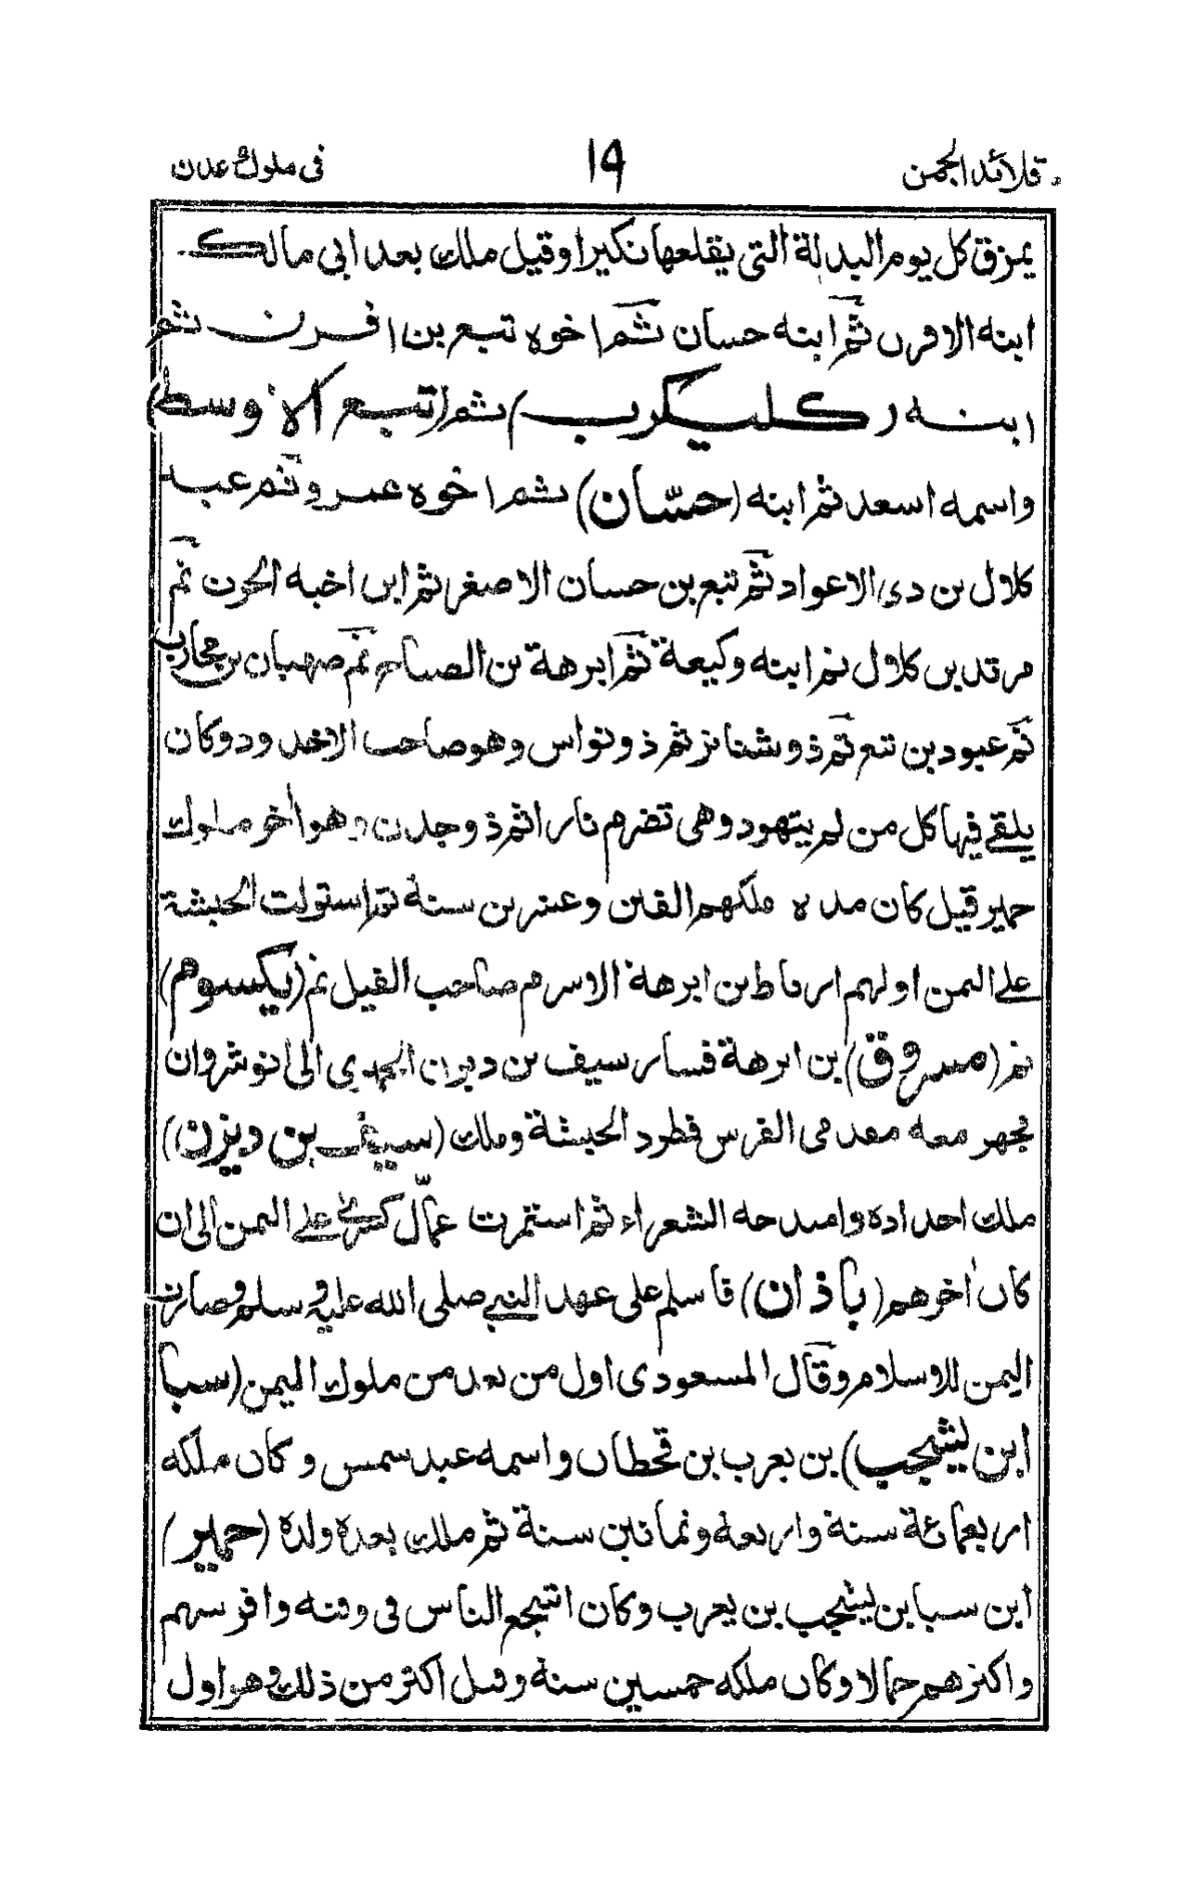 قلائد الجمن ١٩ فى ملوك عدن
يمزق كل يوم البدلة التى يقلعها نكيرا وقيل ملك بعد ابى مالك
ابنه الافرن ثم ابنه حسان ثم اخوه تبع بن افرن ثم
ابنه (كليكرب) ثم (تبع الاوسط)
واسمه اسعد ثم ابنه (حسّان) ثم اخوه عمرو ثم عبد
كلال بن ذى الاعواد ثم تبع بن حسان الاصغر ثم ابن اخيه الحرث ثم
مرثد بن كلال ثم ابنه وكيعة ثم ابرهة بن الصباح ثم صهبان بن محارب
ثم عبود بن تبع ثم ذو شناتر ثم ذو نواس وهو صاحب الاخدود وكان
يلقى فيها كل من لم يتهود وهى تضرم نارا ثم ذو جدن وهو أخر ملوك
حمير قيل كان مدة ملكهم الفين وعشرين سنة ثم استولت الحبشة
على اليمن اولهم ارياط بن ابرهة الاشرم صاحب الفيل ثم (يكسوم)
ثم (مسروق) بن ابرهة فسار سيف بن ديزن الحميرى الى انوشروان
فجهز معه مقدمى الفرس فطرد الحبشة وملك (سيف بن ديزن)
ملك اجداده وامتدحه الشعراء ثم استمرت عمّال كسرى على اليمن الى ان
كان أخرهم (باذان) فاسلم على عهد النبى صلى الله عليه وسلم وصارت
اليمن للاسلام وقال المسعودى اول من يعد من ملوك اليمن (سبا
ابن يشجب) بن يعرب بن قحطان واسمه عبد شمس وكان ملكه
اربعمائة سنة واربعة وثمانين سنة ثم ملك بعده ولده (حمير)
ابن سبا بن يشجب بن يعرب وكان اشجع الناس فى وقته وافرسهم
واكثرهم جمالا وكان ملكه خمسين سنة وقيل اكثر من ذلك وهو اول